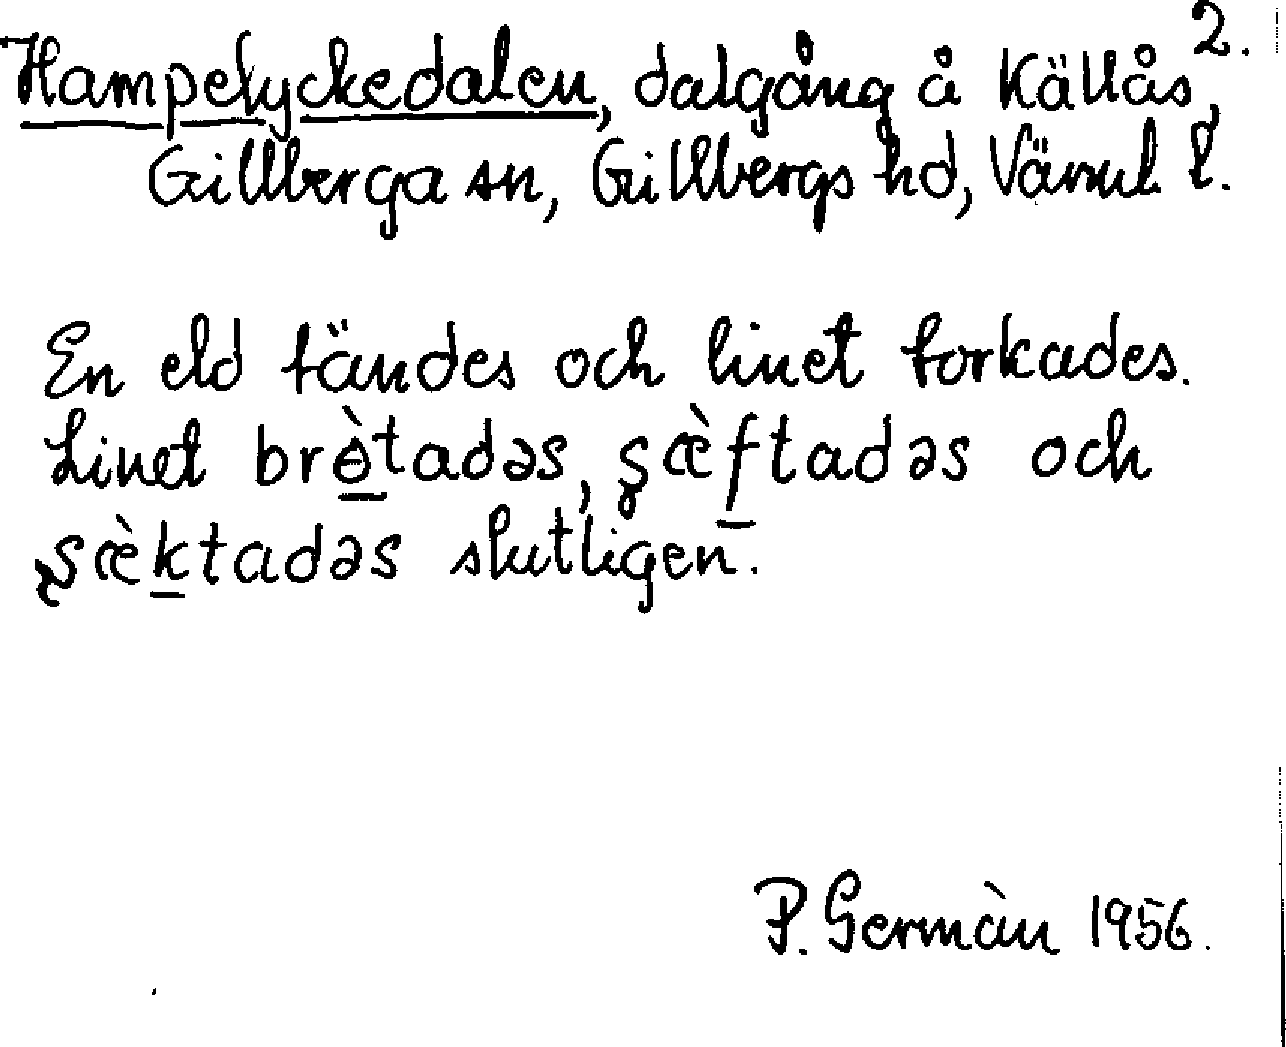 2.
Hampelyckedalen, dalgång å Källås,
Gillberga sn, Gillbergs hd, Värml l.
En eld tändes och linet torkades.
Linet brɵ̀tadəs, ʂæ̀ftadəs och
ʂæ̀ktadəs slutligen.
P. Germàn 1956.